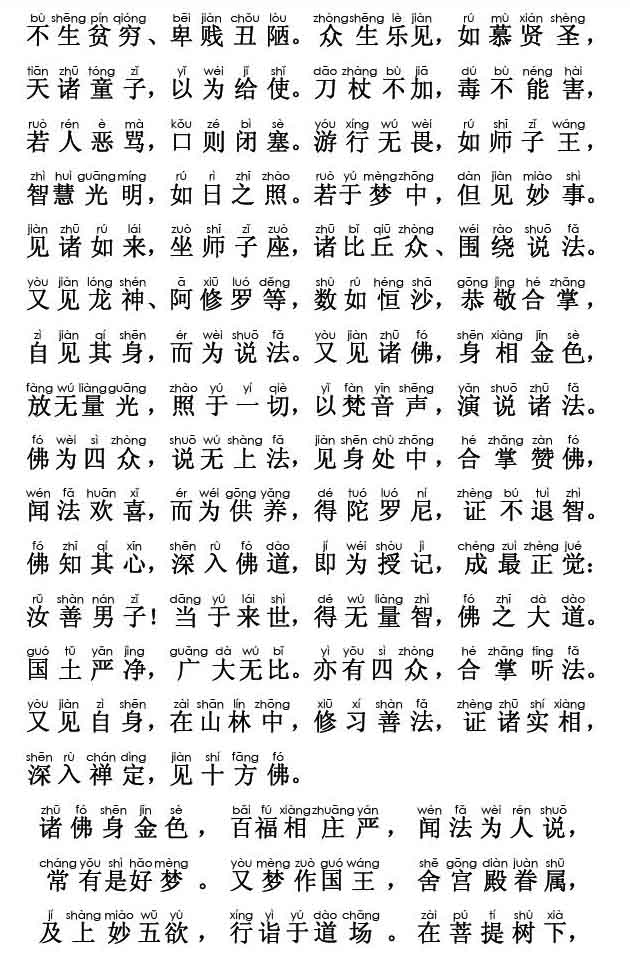 bù shēng pín qióng bēi jiàn chǒu lòu zhòng shēng lè jiàn rú mù xián shèng
不生贫穷、卑贱丑陋。众生乐见，如慕贤圣，
tiān zhū tóng zǐ yǐ wéi jǐ shǐ dāo zhàng bù jiā dú bù néng hài
天诸童子，以为给使。刀杖不加，毒不能害，
ruò rén è mà kǒu zé bì sè yóu xíng wú wèi rú shī zǐ wáng
若人恶骂，口则闭塞。游行无畏，如师子王，
zhì huì guāng míng rú rì zhī zhào ruò yú mèng zhōng dàn jiàn miào shì
智慧光明，如日之照。若于梦中，但见妙事。
jiàn zhū rú lái zuò shī zǐ zuò zhū bǐ qiū zhòng wéi rào shuō fǎ
见诸如来，坐师子座，诸比丘众、围绕说法。
yòu jiàn lóng shén ā xiū luó děng shù rú héng shā gōng jìng hé zhǎng
又见龙神、阿修罗等，数如恒沙，恭敬合掌，
zì jiàn qí shēn ér wèi shuō fǎ yòu jiàn zhū fó shēn xiàng jīn sè
自见其身，而为说法。又见诸佛，身相金色，
fàng wú liàng guāng zhào yú yí qiè yǐ fàn yīn shēng yǎn shuō zhū fǎ
放无量光，照于一切，以梵音声，演说诸法。
fó wèi sì zhòng shuō wú shàng fǎ jiàn shēn chù zhōng hé zhǎng zàn fó
佛为四众，说无上法，见身处中，合掌赞佛，
wén fǎ huān xǐ ér wéi gōng yǎng dé tuó luó ní zhèng bú tuì zhì
闻法欢喜，而为供养，得陀罗尼，证不退智。
fó zhī qí xīn shēn rù fó dào jí wéi shòu jì chéng zuì zhèng jué
佛知其心，深入佛道，即为授记，成最正觉：
rǔ shàn nán zǐ dāng yú lái shì dé wú liàng zhì fó zhī dà dào
汝善男子！当于来世，得无量智，佛之大道。
guó tǔ yān jìng guǎng dà wú bǐ yì yǒu sì zhòng hé zhǎng tīng fǎ
国土严净，广大无比。亦有四众，合掌听法。
yòu jiàn zì shēn zài shān lín zhōng xiū xí shàn fǎ zhèng zhū shí xiàng
又见自身，在山林中，修习善法，证诸实相，
shēn rù chán dìng jiàn shí fāng fó
深入禅定，见十方佛。
zhū fó shēn jīn sè bǎi fú xiàng zhuāng yán wén fǎ wèi rén shuō
诸佛身金色，百福相庄严，闻法为人说，
cháng yǒu shì hǎo mèng yòu mèng zuò guó wáng shě gōng diàn juàn shǔ
常有是好梦。又梦作国王，舍宫殿眷属，
jí shàng miào wǔ yù xíng yì yú dào chǎng zài pú tí shù xià
及上妙五欲，行诣于道场。在菩提树下，